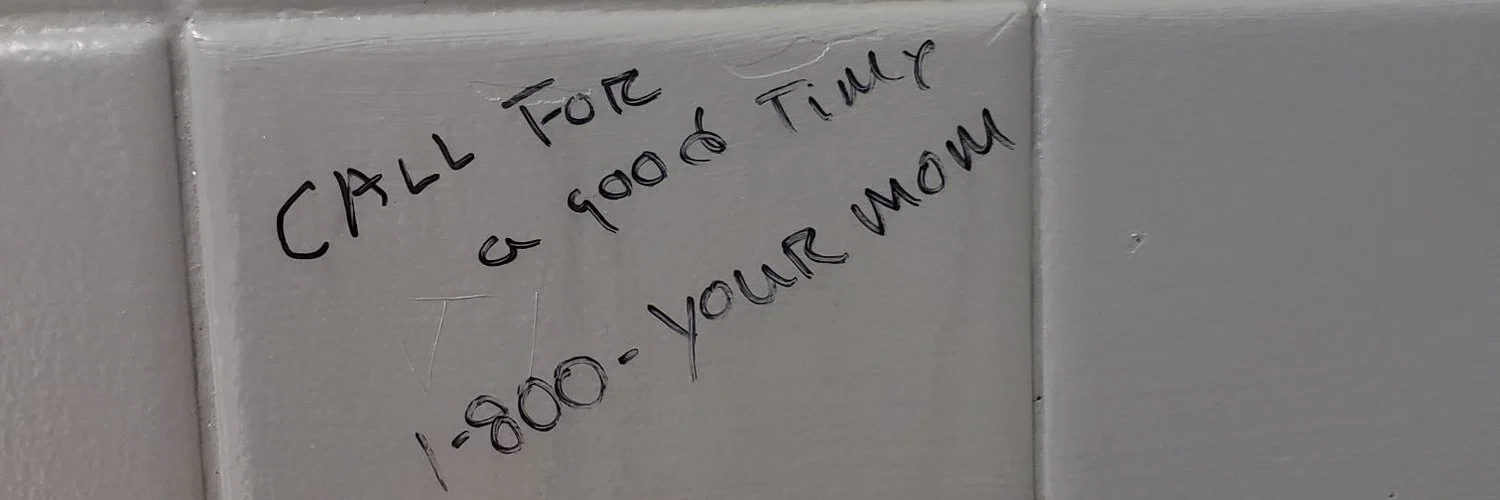 CALL FOR
a good Timy
1-800-YOUR MOM